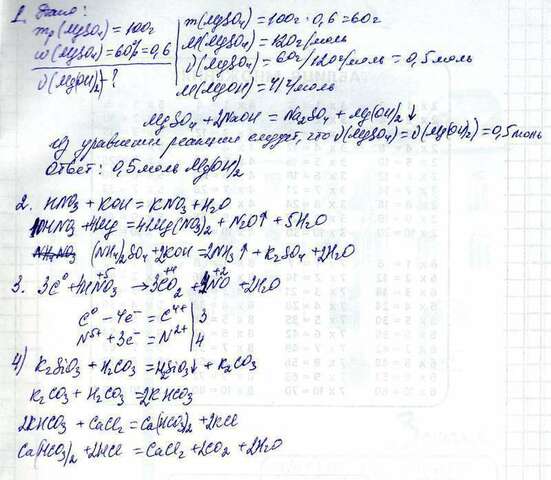 1. Дано:
mр(MgSO₄) = 100г
ω(MgSO₄) = 60% = 0,6
ν(Mg(OH)₂) - ?
m(MgSO₄) = 100г · 0,6 = 60г
M(MgSO₄) = 120г/моль
ν(MgSO₄) = 60г/120г/моль = 0,5 моль
M(MgOH) = 41г/моль
MgSO₄ + 2NaOH = Na₂SO₄ + Mg(OH)₂↓
Из уравнения реакции следует, что ν(MgSO₄) = ν(Mg(OH)₂) = 0,5 моль
Ответ: 0,5 моль Mg(OH)₂
2. HNO₃ + KOH = KNO₃ + H₂O
10HNO₃ + 4Mg = 4Mg(NO₃)₂ + N₂O↑ + 5H₂O
NH₄NO₃ (NH₄)₂SO₄ + 2KOH = 2NH₃↑ + K₂SO₄ + 2H₂O
3. 3C⁰ + 4HN⁺⁵O₃ → 3C⁺⁴O₂ + 4N⁺²O + 2H₂O
C⁰ - 4e⁻ = C⁴⁺ | 3
N⁵⁺ + 3e⁻ = N²⁺ | 4
4) K₂SiO₃ + H₂CO₃ = H₂SiO₃↓ + K₂CO₃
K₂CO₃ + H₂CO₃ = 2KHCO₃
2KHCO₃ + CaCl₂ = Ca(HCO₃)₂ + 2KCl
Ca(HCO₃)₂ + 2HCl = CaCl₂ + 2CO₂ + 2H₂O